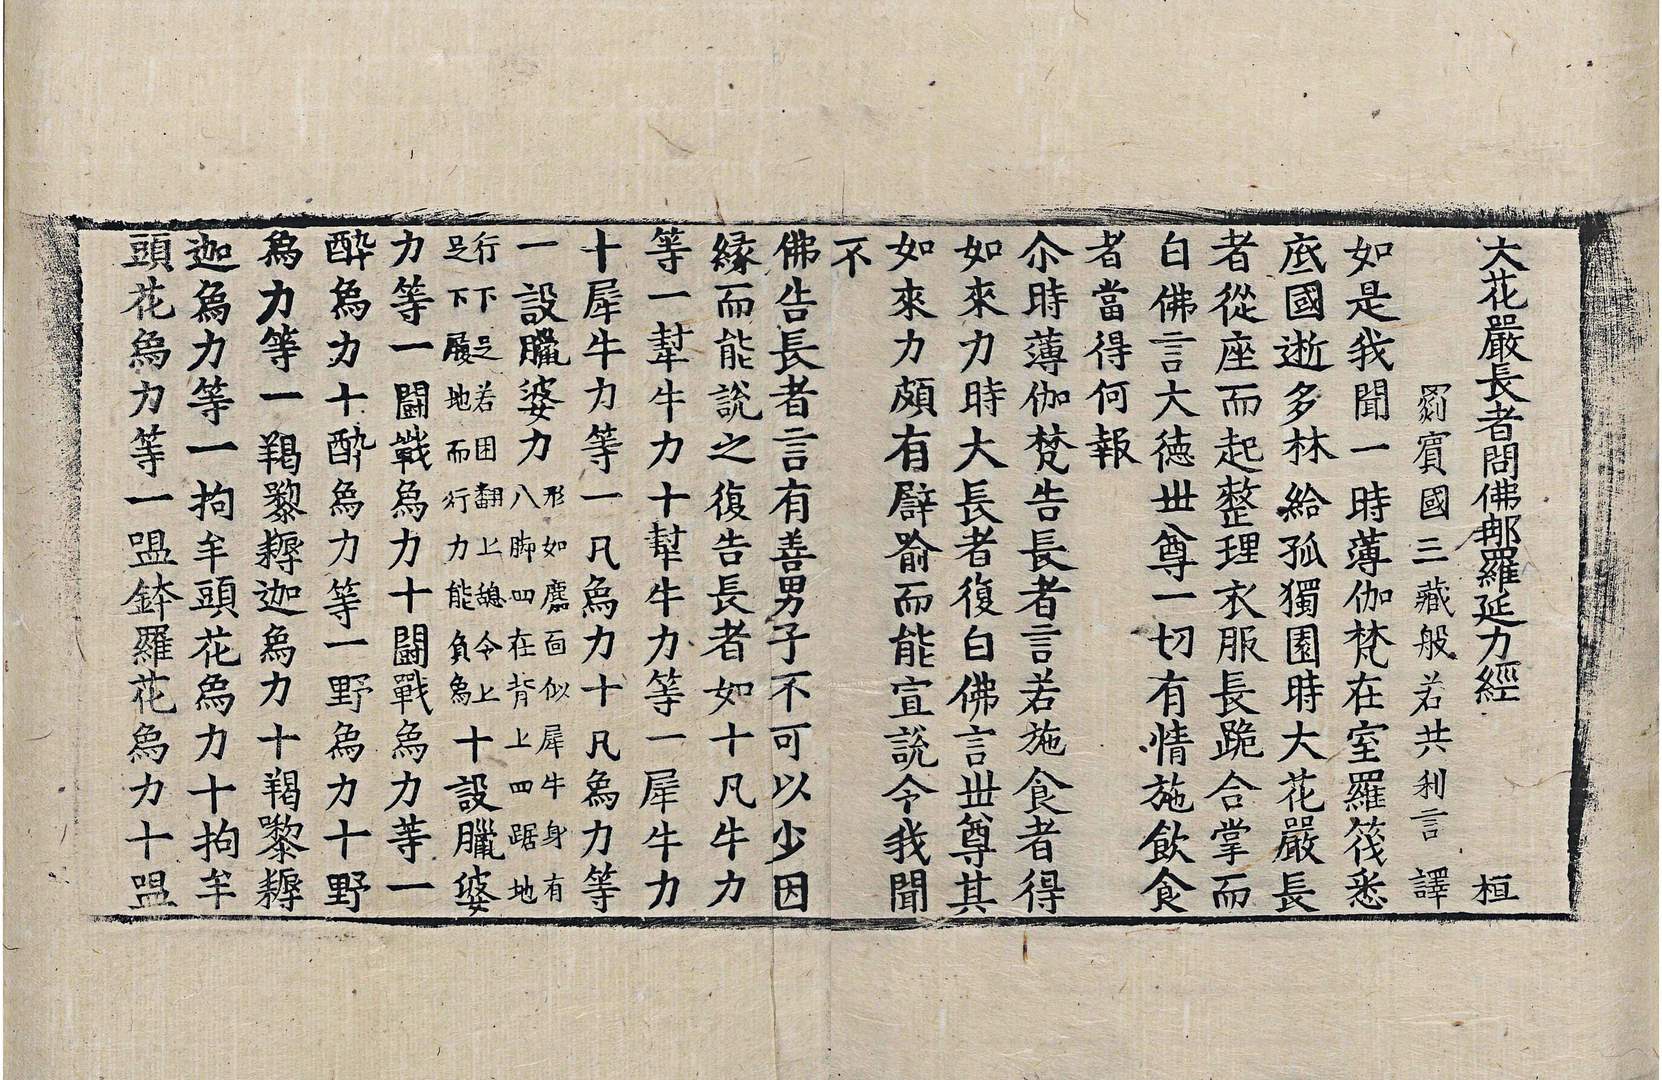 大花嚴長者問佛那羅延力經 桓
罽賓國三藏般若共利言 譯
如是我聞一時薄伽梵在室羅筏悉
底國逝多林給孤獨園時大花嚴長
者從座而起整理衣服長跪合掌而
白佛言大德世尊一切有情施飲食
者當得何報
尒時薄伽梵告長者言若施食者得
如來力時大長者復白佛言世尊其
如來力頗有辟喻而能宣說令我聞
不
佛告長者言有善男子不可以少因
緣而能說之復告長者如十凡牛力
等一犎牛力十犎牛力等一犀牛力
十犀牛力等一凡象力十凡象力等
一設臘婆力 形如麞面似犀牛身有 八脚四在背上四踞地
行下足若困翻上令上 足下履地而行力能負象 十設臘婆
力等一鬪戰象力十鬪戰象力等一
醉象力十醉象力等一野象力十野
象力等一羯黎耨迦象力十羯黎耨
迦象力等一拘牟頭花象力十拘牟
頭花象力等一嗢鉢羅花象力十嗢